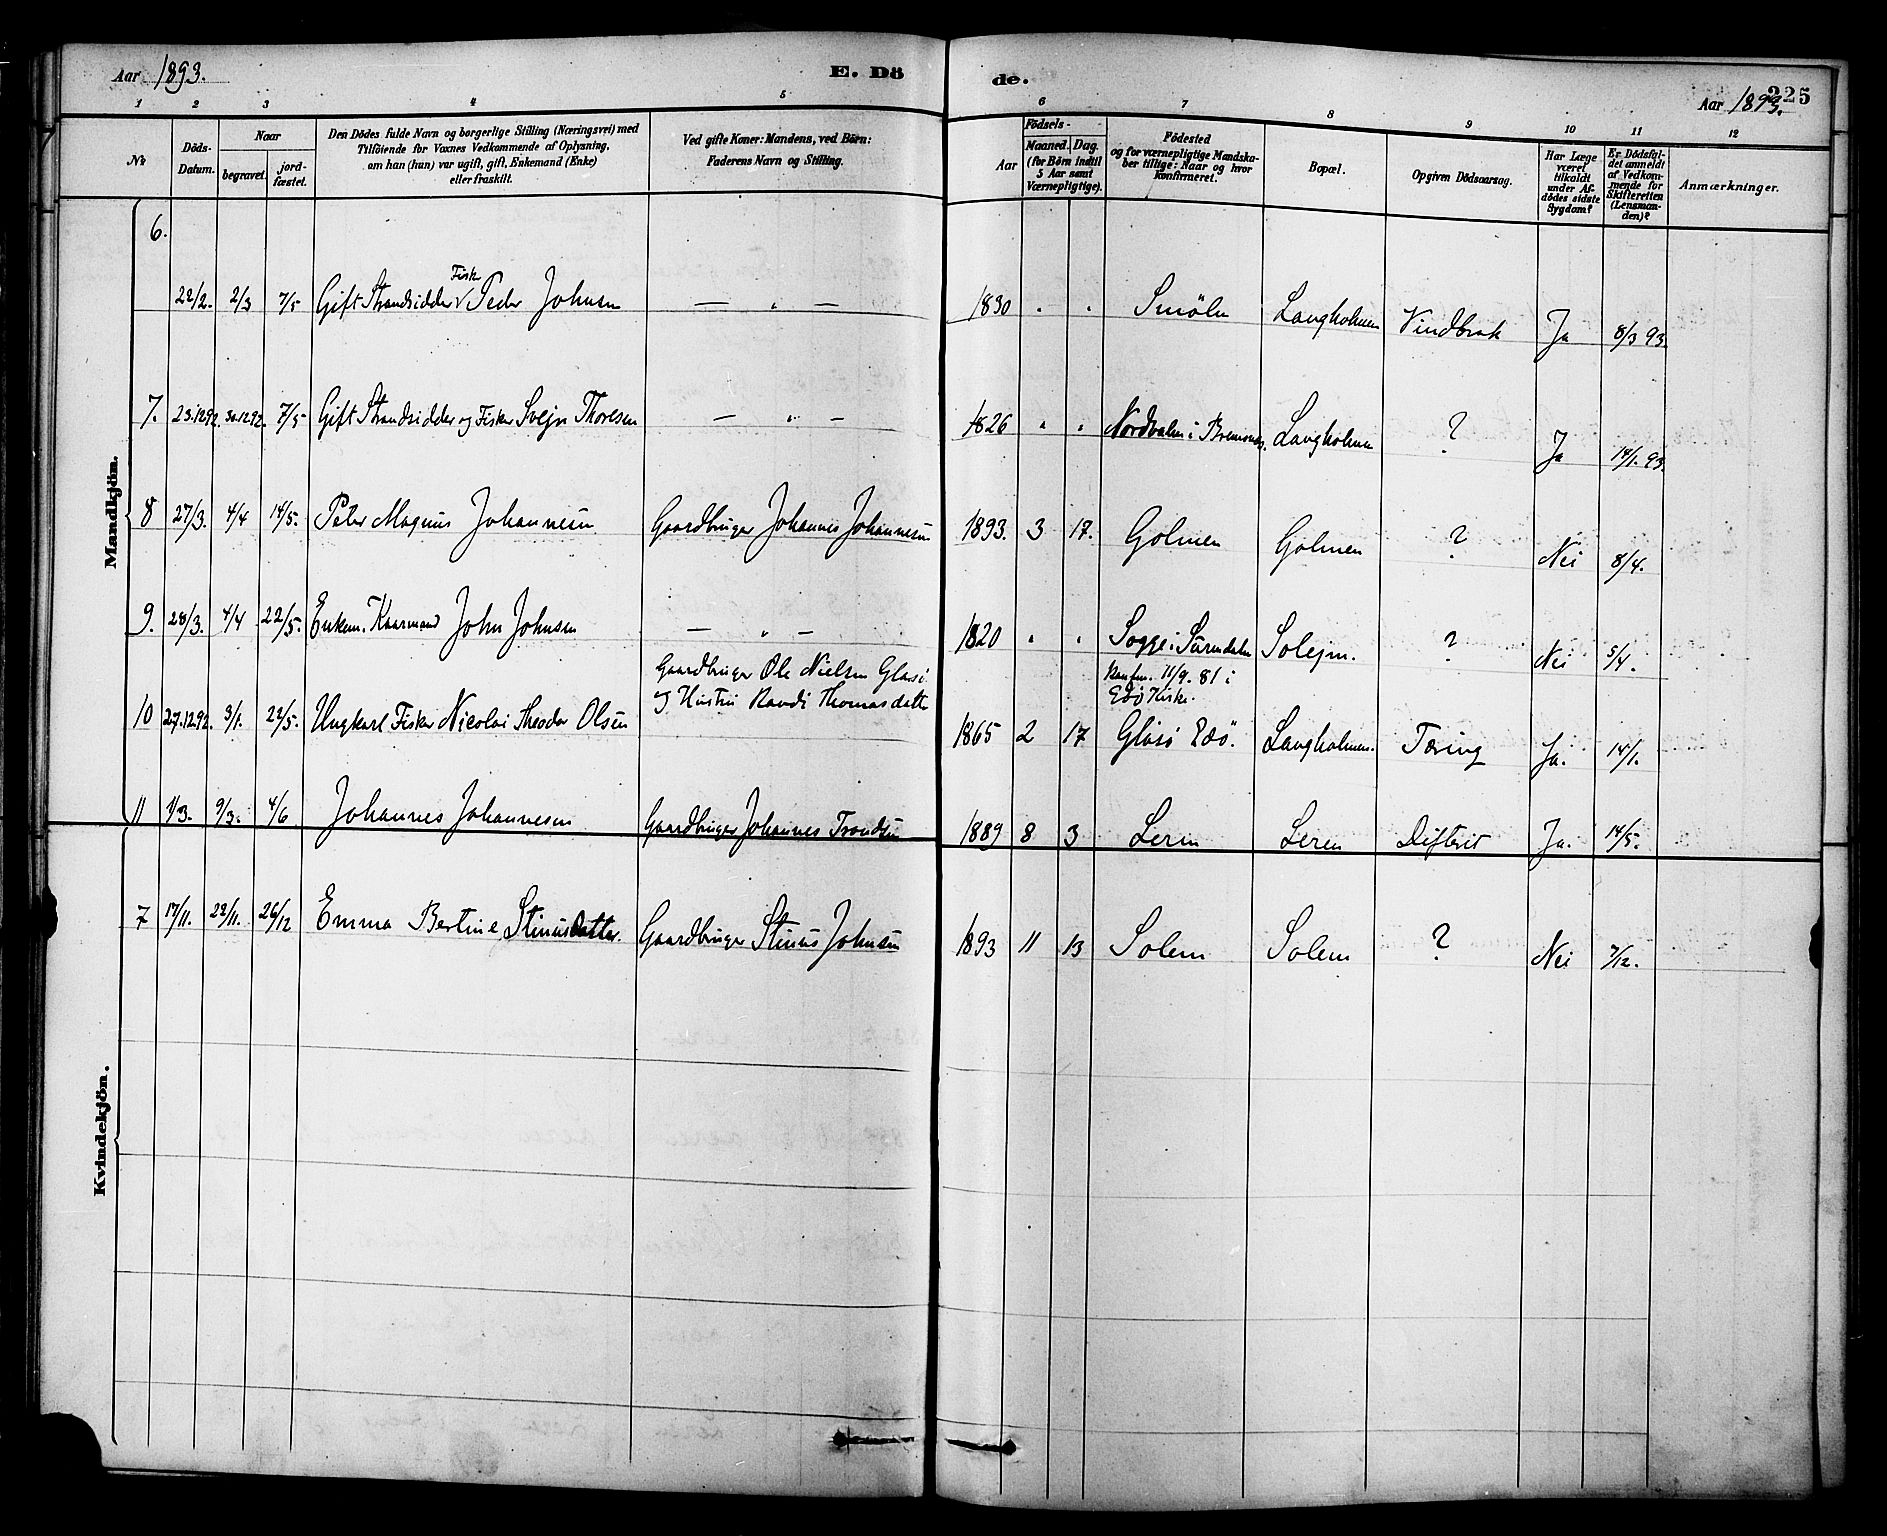 Aar 1893.
E. Dö
de.
Aar 1893.
225
1 2 3 4 5 6 7 8 9 10 11 12
No
Döds-Datum.
Naar
begravet.
jord-fæstet.
Den Dödes fulde Navn og borgerlige Stilling (Næringsvei) med
Tilföiende for Voxnes Vedkommende af Oplysning,
om han (hun) var ugift, gift, Enkemand (Enke)
eller fraskilt.
Ved gifte Koner: Mandens, ved Börn:
Faderens Navn og Stilling.
Födsels-
Aar
Maaned. Dag.
(for Börn indtil
5 Aar samt
Værnepligtige).
Födested
og for værnepligtige Mandska-
ber tillige: Naar og hvor
konfirmeret.
Bopæl.
Opgiven Dödsaarsag.
Har Læge
været
tilkaldt
under Af-
dödes sidste
Sygdom?
Er Dödsfal-
det anmeldt
af Vedkom-
mende for
Skifteretten
(Lensman-
den)?
Anmærkninger.
Mandkjön.
6.
22/2. 2/3 7/5 Gift Strandsidder V Fisker Peder Johnsen — " — 1830 " " Smölen Langholmen Vindbrok Ja 8/3 93.
7. 23.12 92. 30.12 92. 7/5 Gift Strandsidder og Fisker Svejn Thoresen — " — 1826 " " Nordvalen i Bremsnes. Langholmen ? Ja 14/1. 93
8 27/3. 4/4 14/5. Peter Magnus Johannesen Gaardbruger Johannes Johannesen 1893. 3 17. Golmen Golmen ? Nei 8/4.
9. 28/3. 4/4 22/5. Enkem. Kaarmand John Johnsen — " — 1820 " " Sogge i Surendalen Solejm. ? Nei 5/4.
Gaardbruger Ole Nielsen Glasö
og Hustru Randi Thomasdatter
Konfm. 11/9. 81 i
Edö Kirke.
10 27.12 92. 3/1. 22/5. Ungkarl Fisker Nicolai Theodor Olsen 1865 2 17 Glasö Edö. Langholmen. Tæring Ja. 14/1.
11 1/3. 9/3. 4/6 Johannes Johannesen Gaardbruger Johannes Trondsen 1889 8 3 Leren Leren Difterit Ja. 14/5.
Kvindekjön.
7 17/11. 22/11. 26/12 Emma Bertine Stinusdatter. Gaardbruger Stinus Johnsen 1893 11 13 Solem Solem ? Nei 7/12.